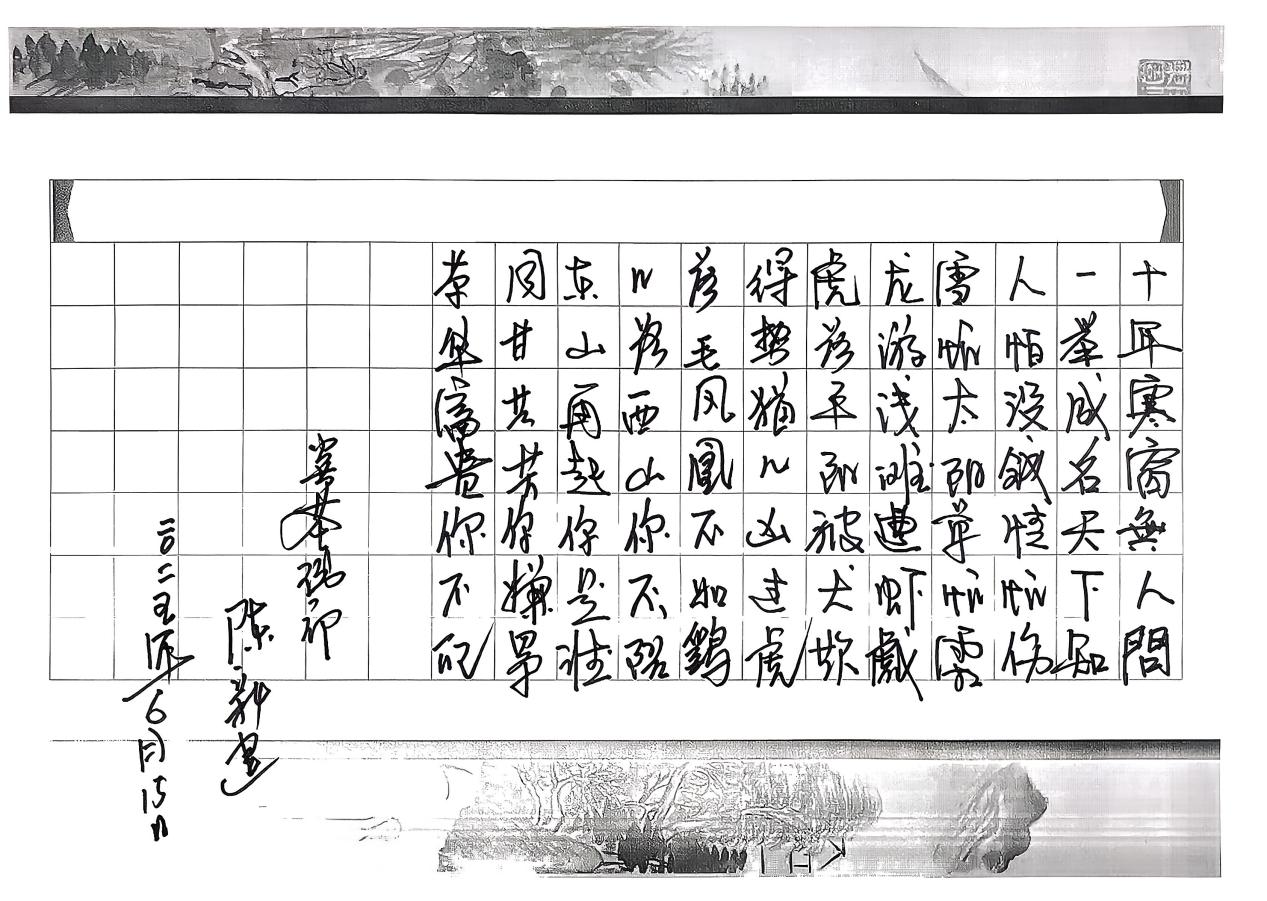 十年寒窗無人問
一举成名天下知
人怕没钱情怕伤
雪怕太阳草怕霜
龙游浅滩遭虾戲
虎落平阳被犬欺
得势猫儿凶过虎
落毛凤凰不如鷄
日落西山你不陪
东山再起你是谁
同甘共苦你嫌累
荣华富贵你不配
陈新建
二〇二五年6月15日